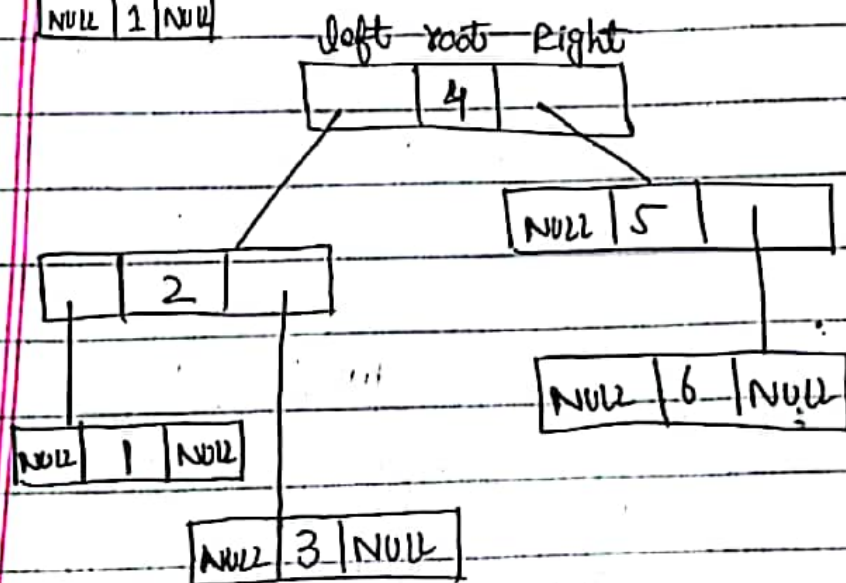 NULL 1 NULL
left root Right
4
NULL 5
2
NULL 6 NULL
NULL 1 NULL
NULL 3 NULL